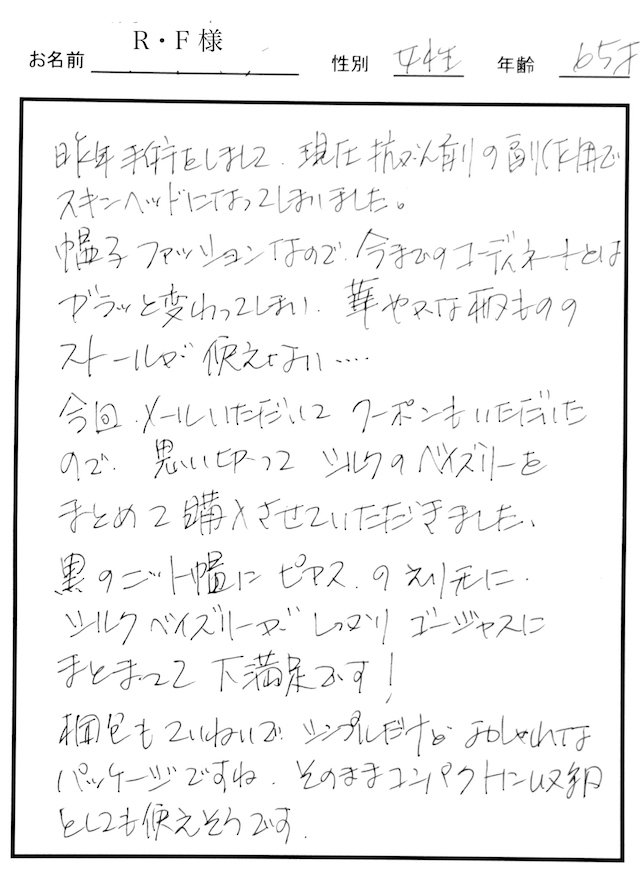 お名前 R・F様 性別 女性 年齢 65才
昨年手術をしまして、現在抗がん剤の副作用で
スキンヘッドになってしまいました。
帽子ファッションなので、今までのコーディネートとは
ガラッと変わってしまい、華やかな柄ものの
ストールが使えない‥‥
今回、メールいただいて クーポンもいただいた
ので、思い切って シルクのペイズリーを
まとめて購入させていただきました、
黒のニット帽に ピアス、のえり元に、
シルクペイズリーが しっかり ゴージャスに
まとまって 大満足です!
梱包もていねいで シンプルだけど おしゃれな
パッケージですね、そのままコンパクトに収納
としても使えそうです.